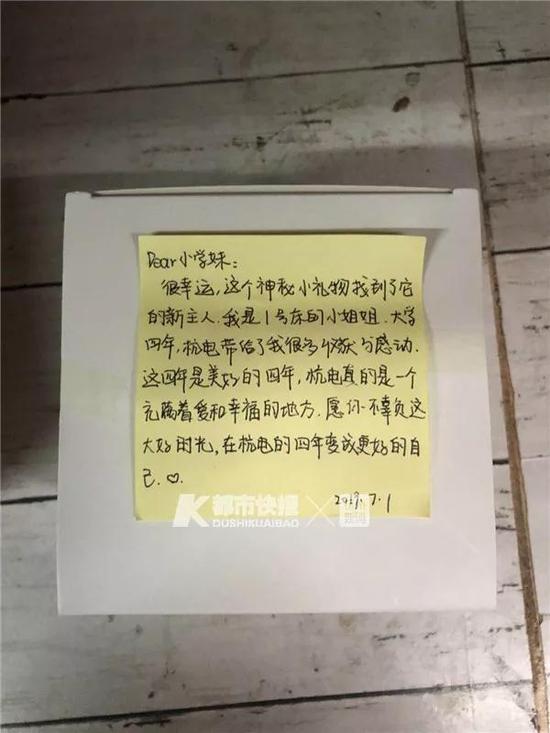 Dear小学妹：
很幸运，这个神秘小礼物找到了它
的新主人.我是1号床的小姐姐.大学
四年，杭电带给了我很多欢与感动.
这四年是美好的四年，杭电真的是一个
充满着爱和幸福的地方.愿你不辜负这
大好时光，在杭电的四年变成更好的自
己.♡.
2019.7.1
都市快报
DUSHIKUAIBAO